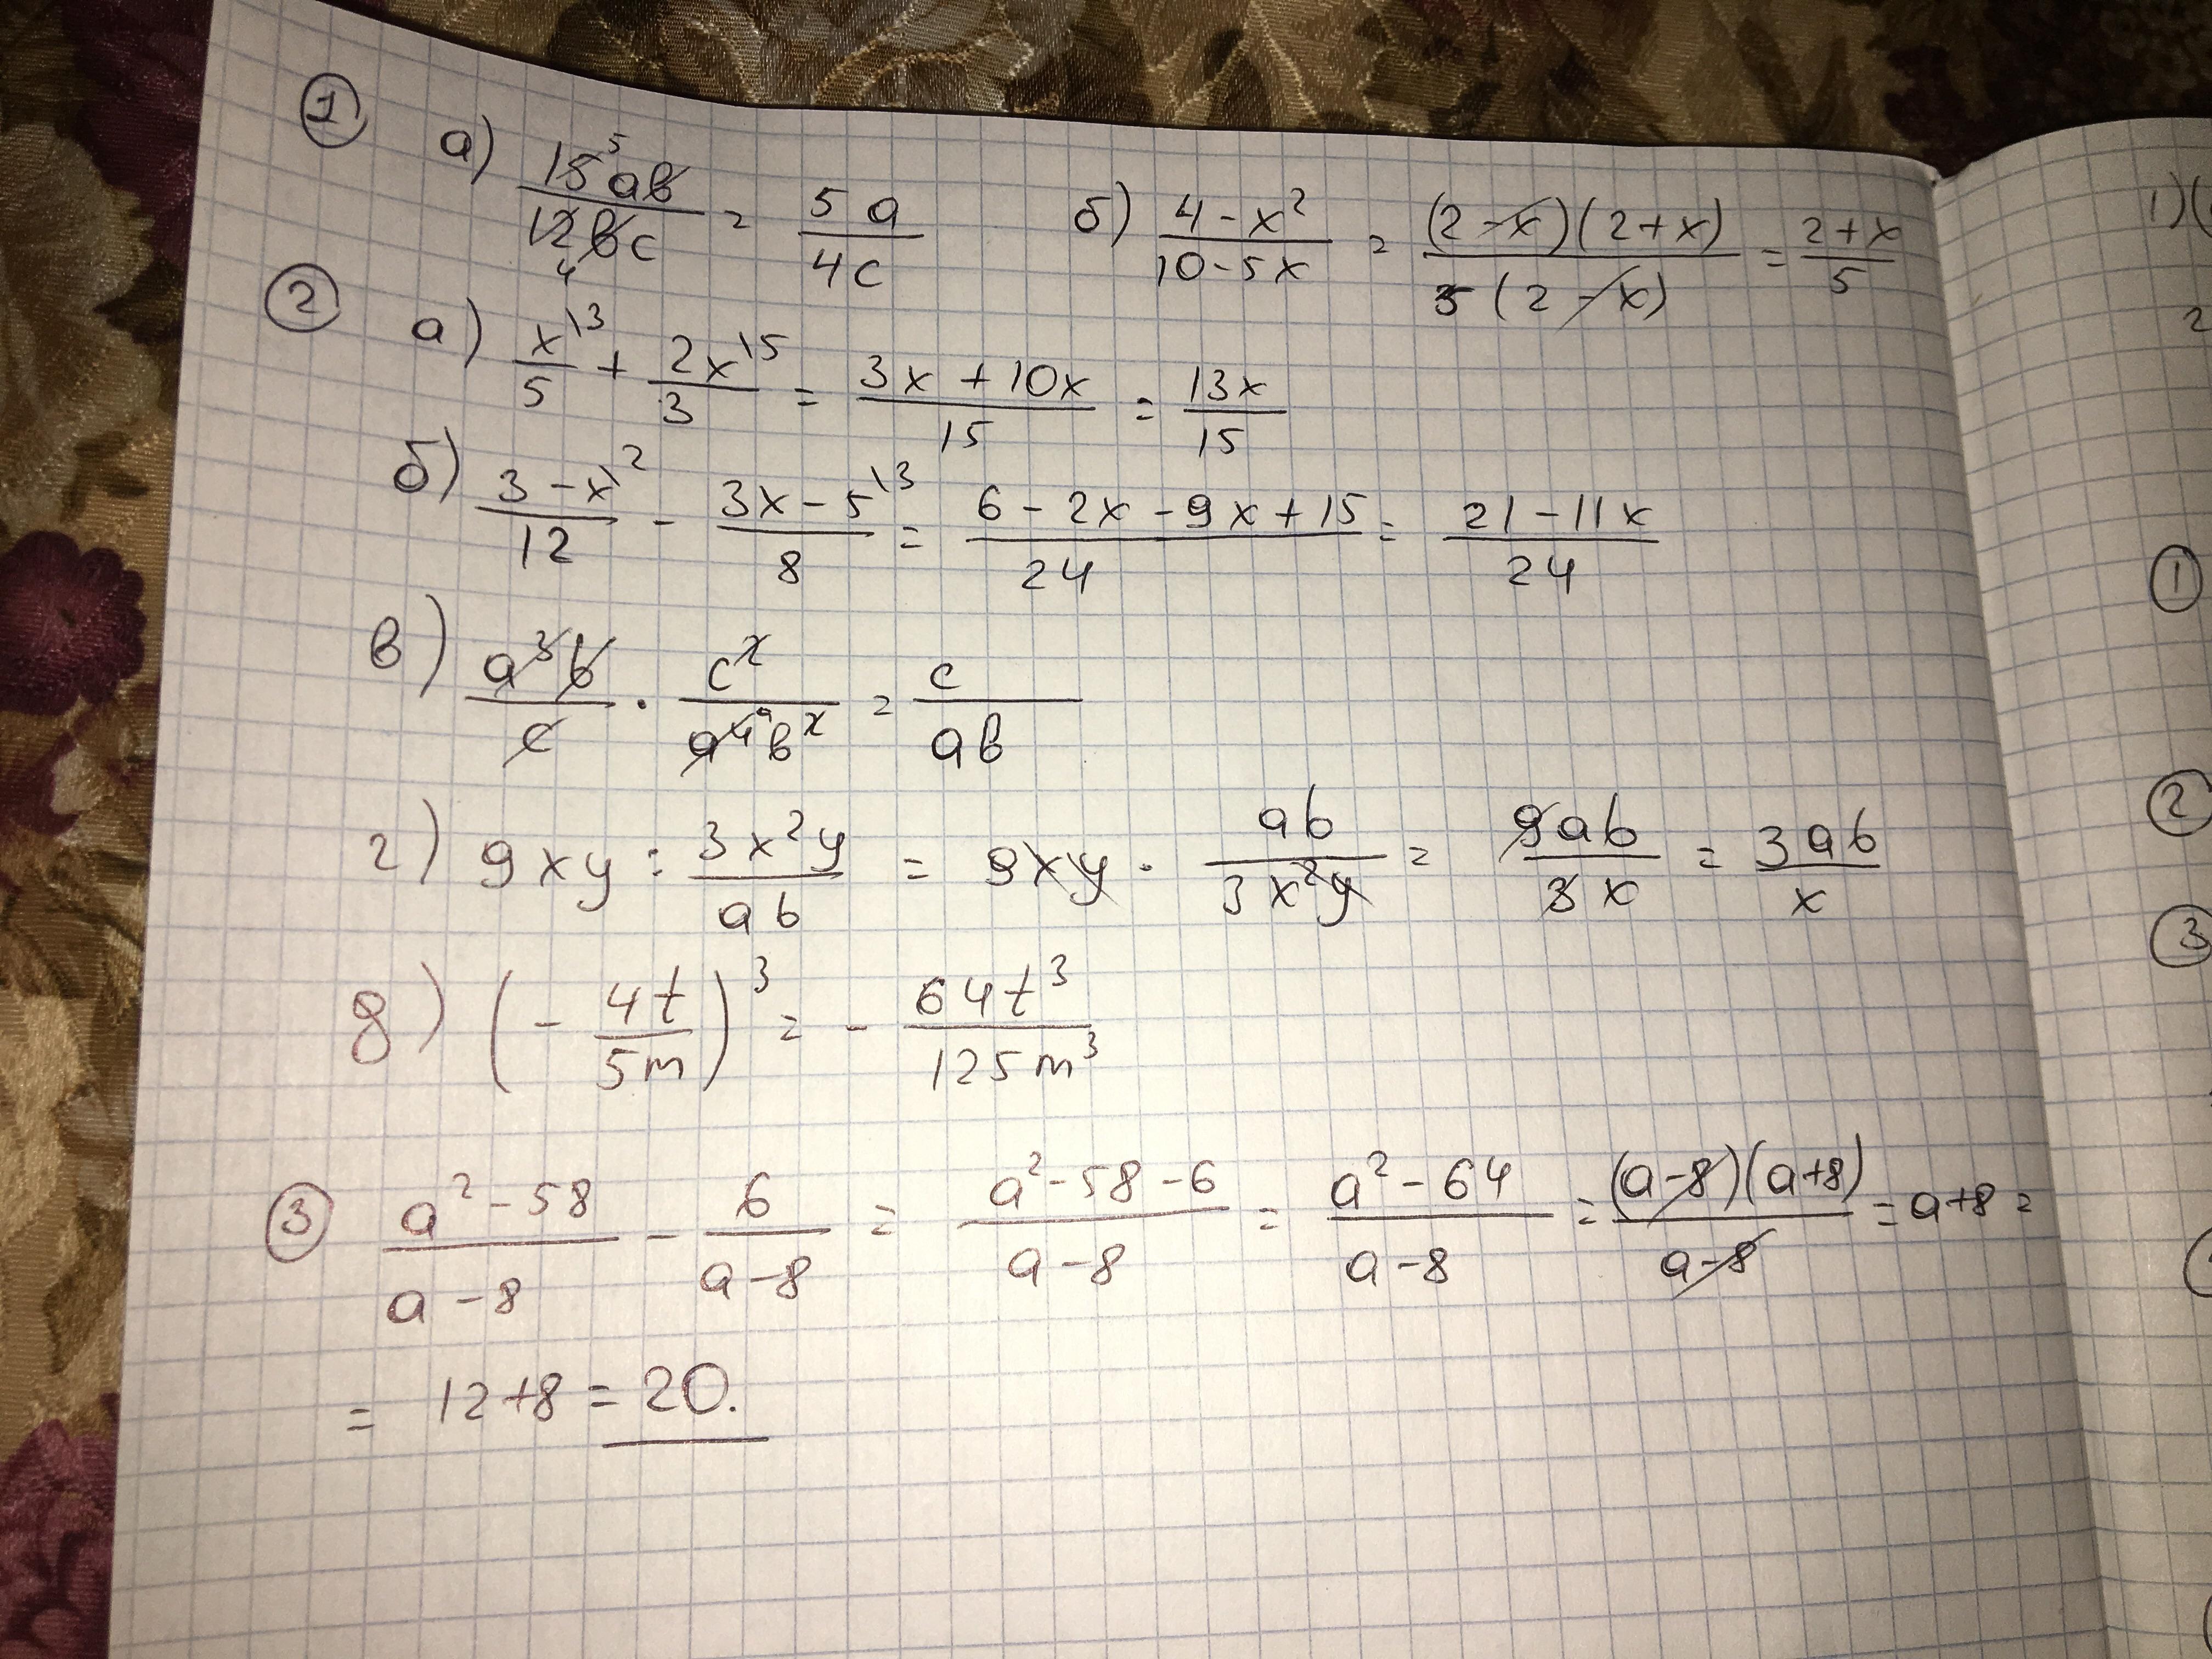 ① а) 15⁵ab/12₄bc = 5a/4c б) 4-x²/10-5x = (2-x)(2+x)/5(2-x) = 2+x/5
② а) x\3/5 + 2x\5/3 = 3x+10x/15 = 13x/15
б) 3-x\2/12 - 3x-5\3/8 = 6-2x-9x+15/24 = 21-11x/24
в) a³b/c · c²/a⁴b² = c/ab
г) 9xy : 3x²y/ab = 9xy · ab/3x²y = 9ab/3x = 3ab/x
g) (-4t/5m)³ = -64t³/125m³
③ a²-58/a-8 - 6/a-8 = a²-58-6/a-8 = a²-64/a-8 = (a-8)(a+8)/a-8 = a+8 =
= 12+8 = 20.
1)(
2
①
②
③